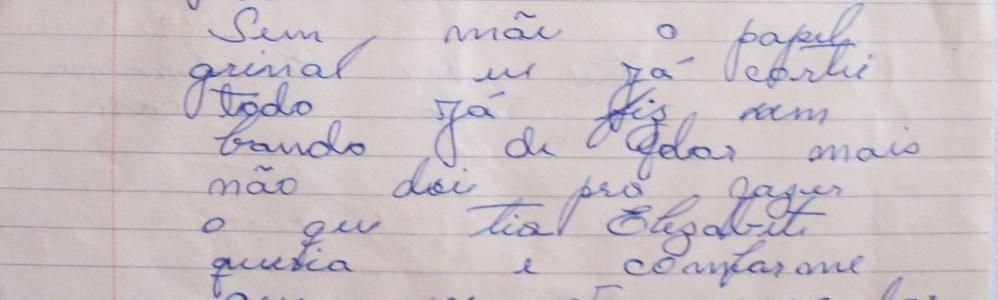 Sim, mãe o papel
grinal eu já cortei
todo já fiz um
bando de flor mais
não dei pra fazer
o que tia Elizabete
queria e comfarme